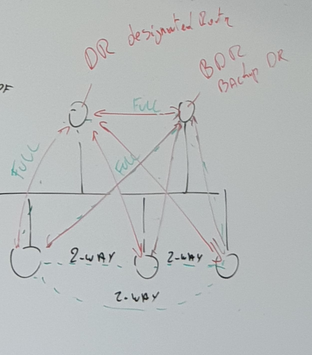 DR designated Route
BDR
Backup DR
PF
FULL
FULL
FULL
2-WAY
2-WAY
2-WAY